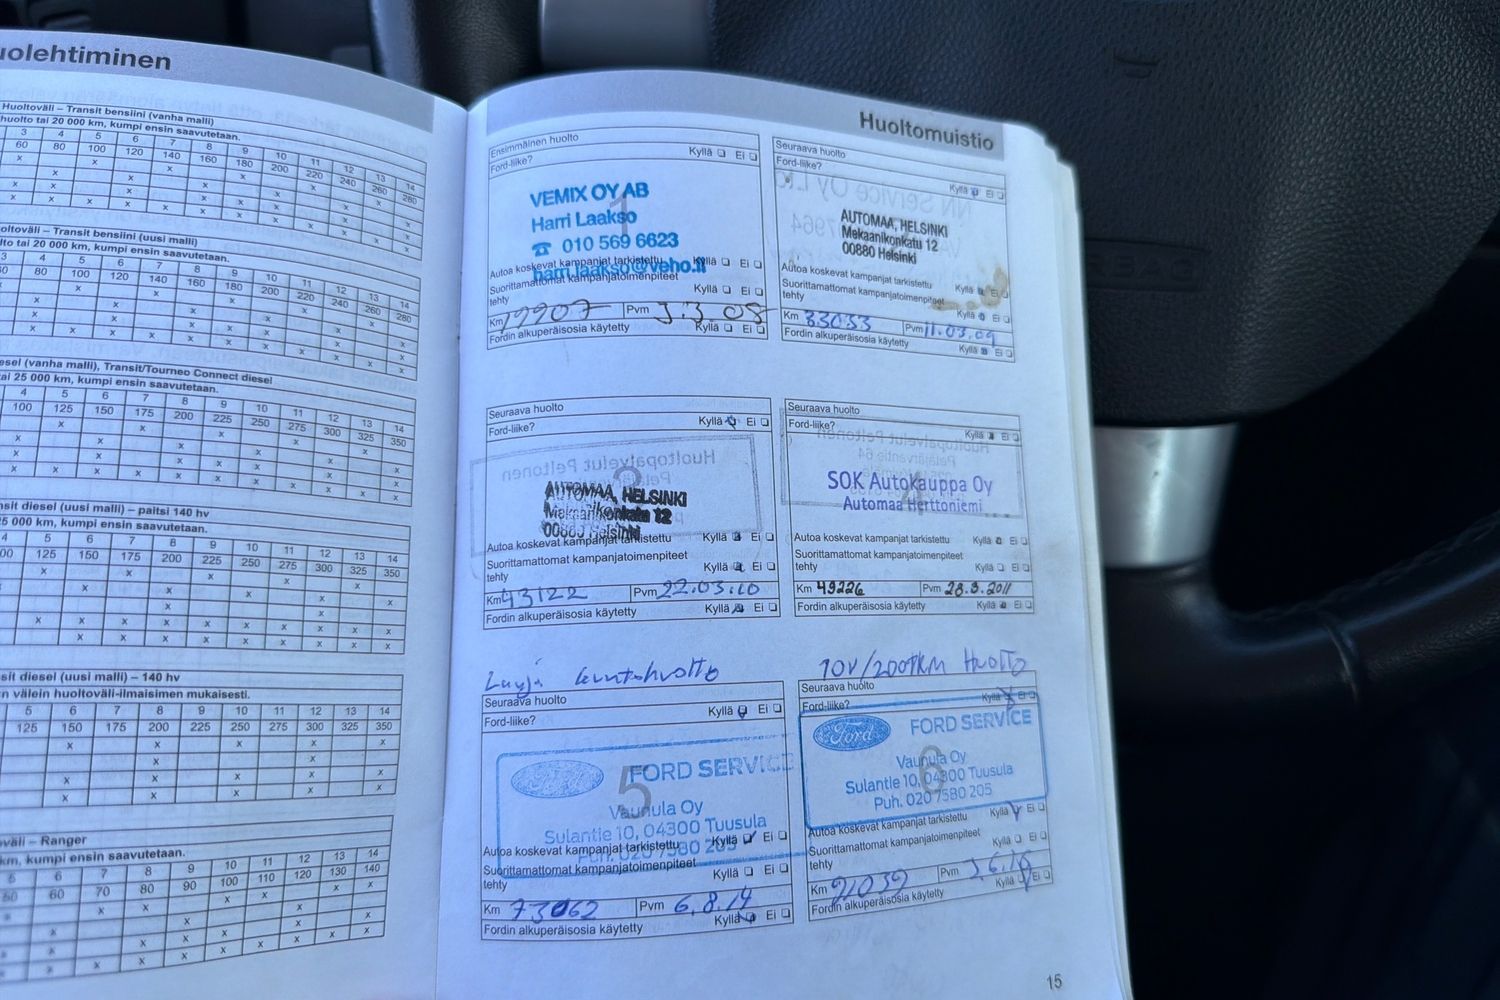 uolehtiminen
Huoltoväli – Transit bensiini (vanha malli)
huolto tai 20 000 km, kumpi ensin saavutetaan.
3 4 5 6 7 8 9 10 11 12 13 14
60 80 100 120 140 160 180 200 220 240 260 280
oltoväli – Transit bensiini (uusi malli)
lto tai 20 000 km, kumpi ensin saavutetaan.
3 4 5 6 7 8 9 10 11 12 13 14
80 100 120 140 160 180 200 220 240 260 280
esel (vanha malli), Transit/Tourneo Connect diesel
ai 25 000 km, kumpi ensin saavutetaan.
4 5 6 7 8 9 10 11 12 13 14
100 125 150 175 200 225 250 275 300 325 350
nsit diesel (uusi malli) – paitsi 140 hv
5 000 km, kumpi ensin saavutetaan.
4 5 6 7 8 9 10 11 12 13 14
00 125 150 175 200 225 250 275 300 325 350
sit diesel (uusi malli) – 140 hv
n välein huoltoväli-ilmaisimen mukaisesti.
5 6 7 8 9 10 11 12 13 14
125 150 175 200 225 250 275 300 325 350
oväli – Ranger
km, kumpi ensin saavutetaan.
6 7 8 9 10 11 12 13 14
60 70 80 90 100 110 120 130 140
Huoltomuistio
Ensimmäinen huolto
Ford-liike? Kyllä Ei
1
VEMIX OY AB
Harri Laakso
☎ 010 569 6623
harri.laakso@veho.fi
Autoa koskevat kampanjat tarkistettu Kyllä Ei
Suorittamattomat kampanjatoimenpiteet
tehty Kyllä Ei
Km 19907 Pvm 3.3.08
Fordin alkuperäisosia käytetty Kyllä Ei
Seuraava huolto
Ford-liike? Kyllä Ei
AUTOMAA, HELSINKI
Mekaanikonkatu 12
00880 Helsinki
Autoa koskevat kampanjat tarkistettu Kyllä Ei
Suorittamattomat kampanjatoimenpiteet
tehty Kyllä Ei
Km 33033 Pvm 11.03.09
Fordin alkuperäisosia käytetty Kyllä Ei
Seuraava huolto
Ford-liike? Kyllä Ei
3
AUTOMAA, HELSINKI
Mekaanikonkatu 12
00880 Helsinki
Autoa koskevat kampanjat tarkistettu Kyllä Ei
Suorittamattomat kampanjatoimenpiteet
tehty Kyllä Ei
Km 43122 Pvm 22.03.10
Fordin alkuperäisosia käytetty Kyllä Ei
Seuraava huolto
Ford-liike? Kyllä Ei
4
SOK Autokauppa Oy
Automaa Herttoniemi
Autoa koskevat kampanjat tarkistettu Kyllä Ei
Suorittamattomat kampanjatoimenpiteet
tehty Kyllä Ei
Km 49226 Pvm 28.3.2011
Fordin alkuperäisosia käytetty Kyllä Ei
Laaja kuntohuolto
Seuraava huolto
Ford-liike? Kyllä Ei
5
Ford FORD SERVICE
Vaunula Oy
Sulantie 10, 04300 Tuusula
Puh. 020 7580 205
Autoa koskevat kampanjat tarkistettu Kyllä Ei
Suorittamattomat kampanjatoimenpiteet
tehty Kyllä Ei
Km 73062 Pvm 6.8.14
Fordin alkuperäisosia käytetty Kyllä Ei
10V/200TKM Huolto
Seuraava huolto
Ford-liike? Kyllä Ei
6
Ford FORD SERVICE
Vaunula Oy
Sulantie 10, 04300 Tuusula
Puh. 020 7580 205
Autoa koskevat kampanjat tarkistettu Kyllä Ei
Suorittamattomat kampanjatoimenpiteet
tehty Kyllä Ei
Km 91039 Pvm
Fordin alkuperäisosia käytetty Kyllä Ei
15